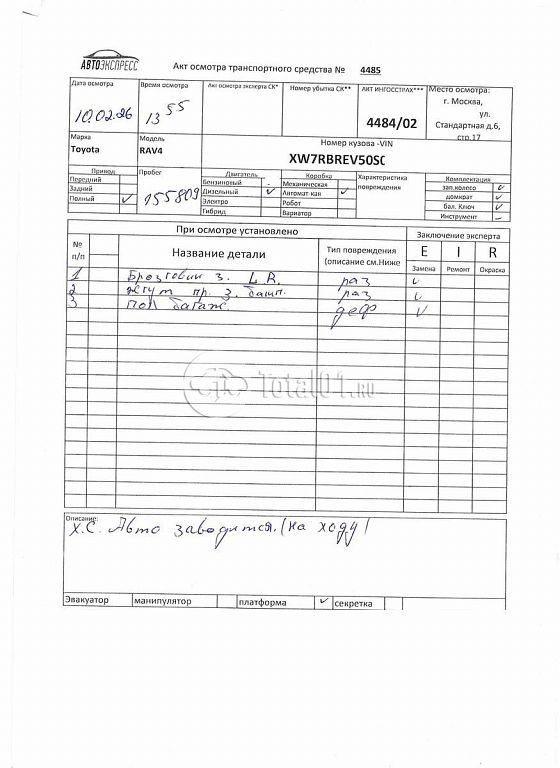 АВТОЭКСПРЕСС
Акт осмотра транспортного средства № 4485
Дата осмотра
10.02.26
Время осмотра
13 55
Акт осмотра эксперта СК*
Номер убытка СК**
АКТ ИНГОССТРАХ***
4484/02
Место осмотра:
г. Москва,
ул.
Стандартная д.6,
стр.17
Марка
Toyota
Модель
RAV4
Номер кузова -VIN
XW7RBREV50S0
Привод
Передний
Задний
Полный
Пробег
155809
Двигатель
Бензиновый
Дизельный
Электро
Гибрид
Коробка
Механическая
Автомат-кая
Робот
Вариатор
Характеристика
повреждения
Комплектация
зап.колесо
домкрат
бал. Ключ
Инструмент
При осмотре установлено
Заключение эксперта
№
п/п
Название детали
Тип повреждения
(описание см.Ниже
E I R
Замена Ремонт Окраска
1 Брызговик з. L.R. раз
2 Жгут пр. з. бамп. раз
3 Пол багаж. деф
Total01.ru
Описание:
Х.С. Авто заводится. (на ходу)
Эвакуатор манипулятор платформа секретка